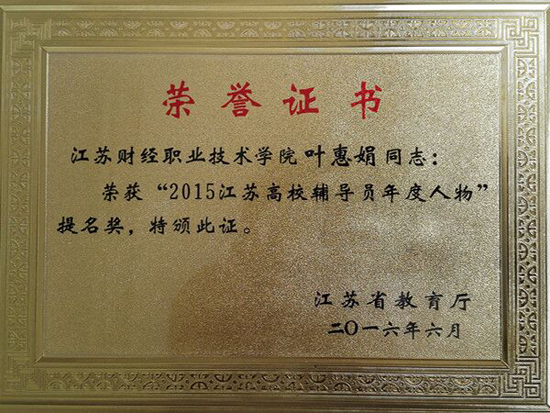 荣誉证书
江苏财经职业技术学院叶惠娟同志：
荣获“2015江苏高校辅导员年度人物”
提名奖，特颁此证。
江苏省教育厅
二〇一六年六月